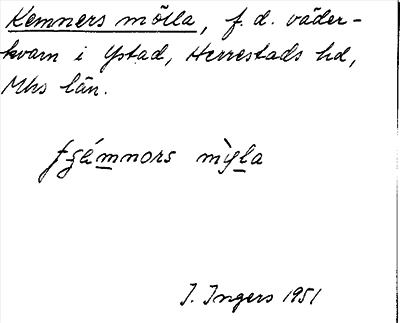 Kemners mölla, f. d. väder-
kvarn i Ystad, Herrestads hd,
Mhs län.
mỳla
I. Ingers 1951